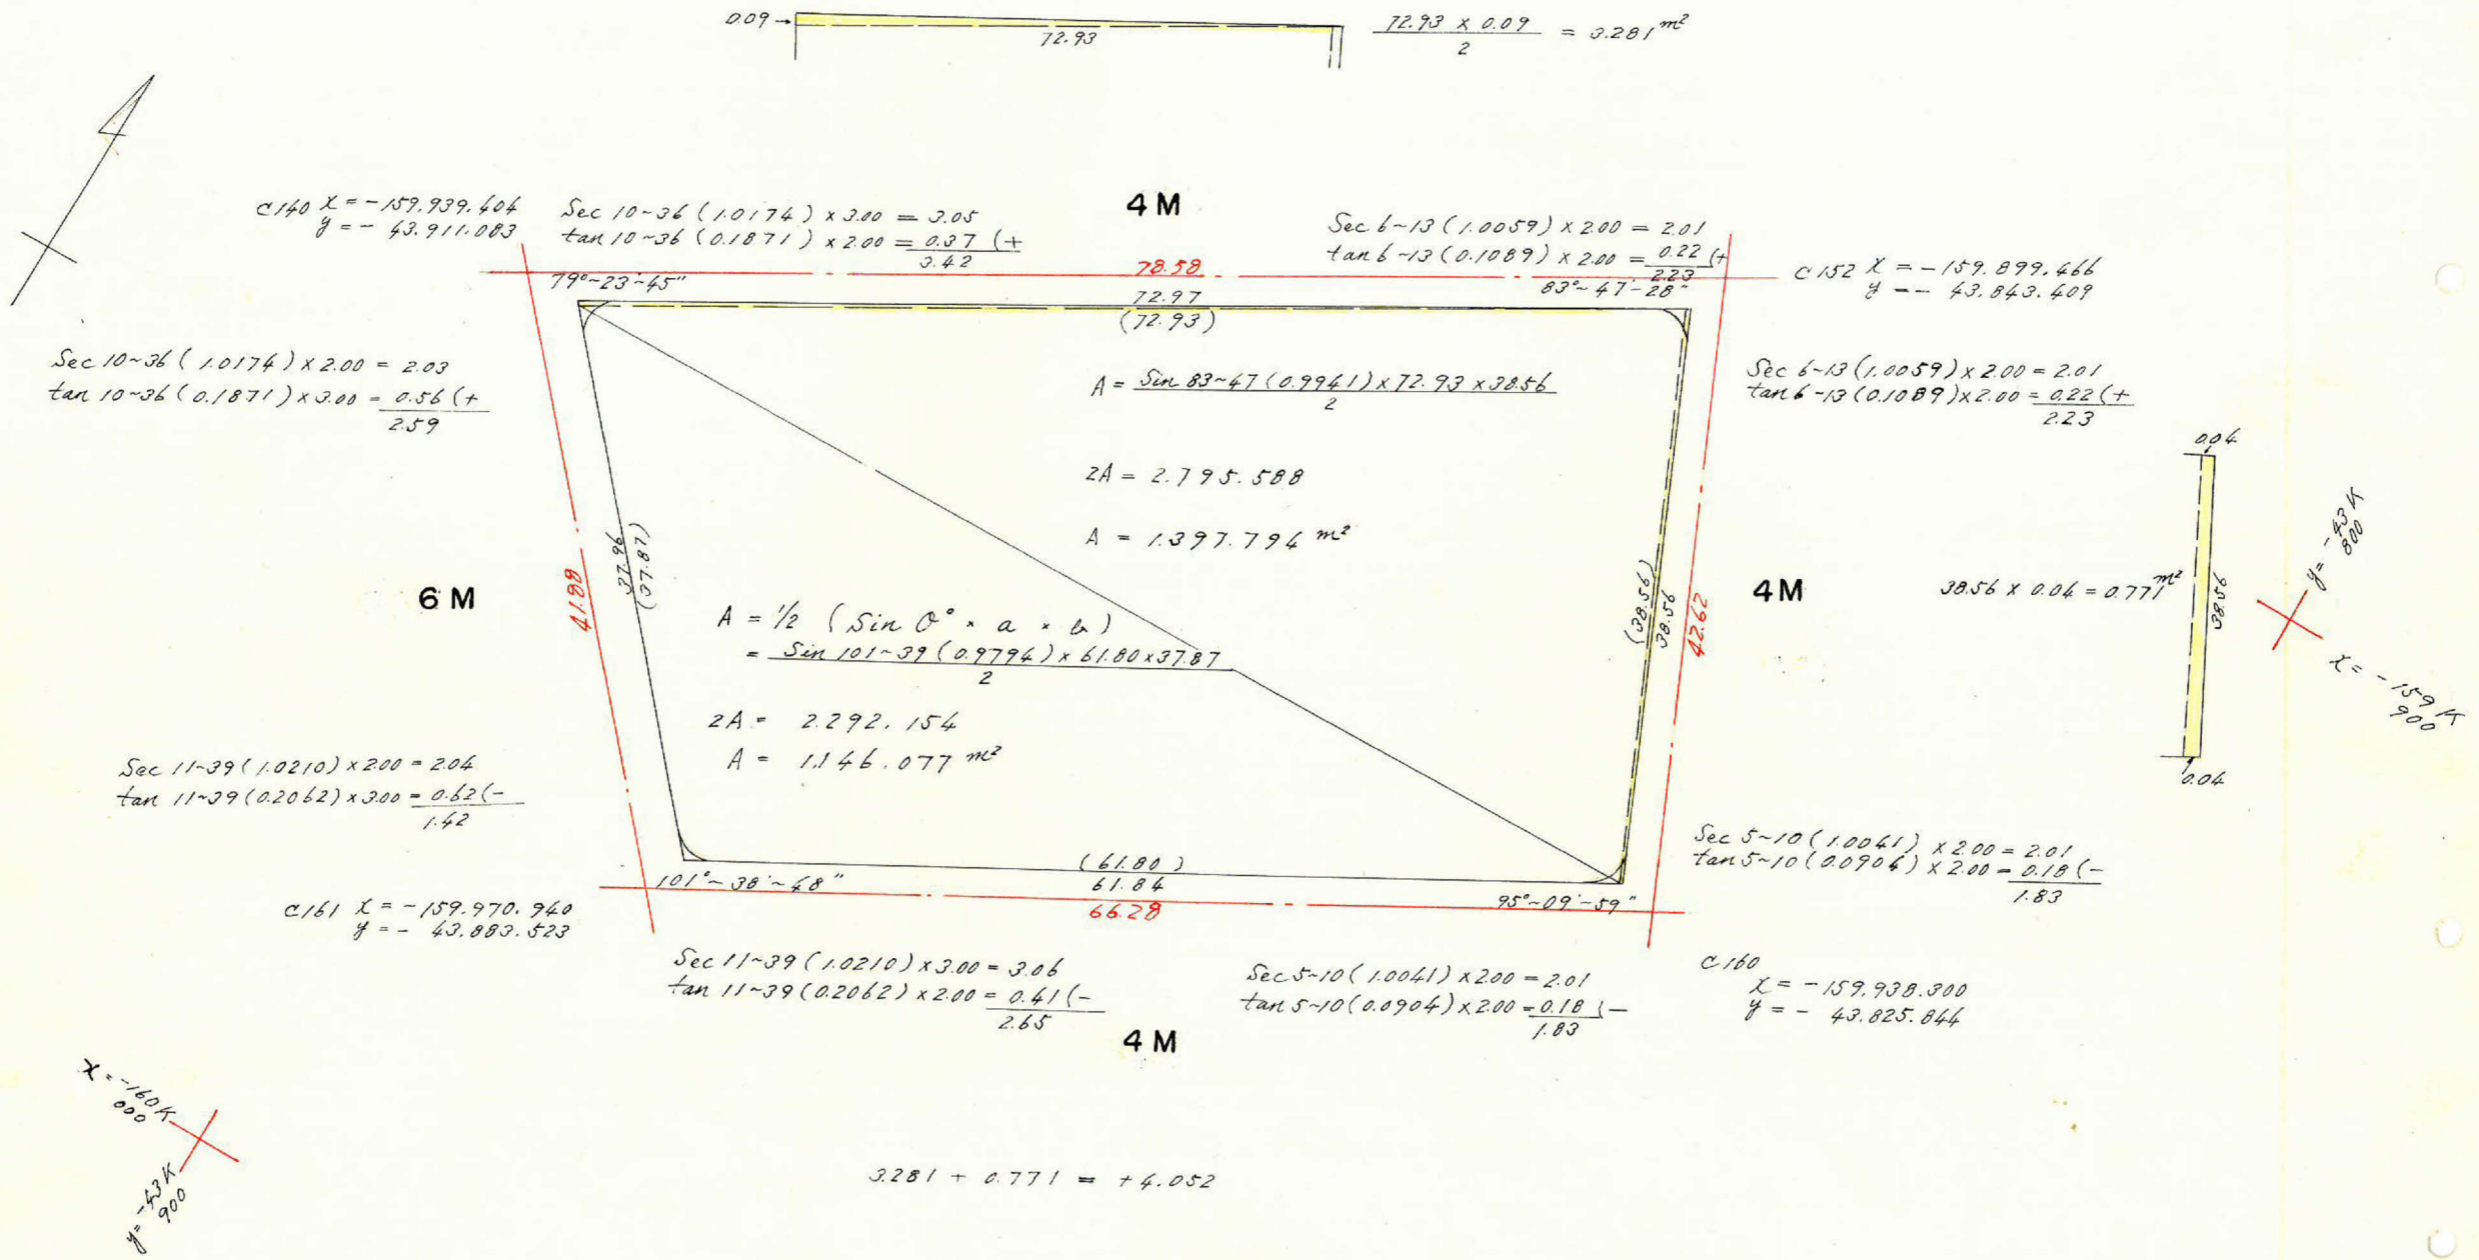 0.09 →
72.93
72.93 x 0.09 / 2 = 3.281 m²
C140 X = -159.939.404
y = - 43.911.083
Sec 10~36 (1.0174) x 3.00 = 3.05
tan 10~36 (0.1871) x 2.00 = 0.37 (+
3.42
4 M
Sec 6~13 (1.0059) x 2.00 = 2.01
tan 6~13 (0.1089) x 2.00 = 0.22 (+
2.23
C152 X = -159.899.466
y = - 43.843.409
79°~23'~45"
78.58
83°~47'~28"
72.97
(72.93)
Sec 10~36 (1.0174) x 2.00 = 2.03
tan 10~36 (0.1871) x 3.00 = 0.56 (+
2.59
A = Sin 83~47 (0.9941) x 72.93 x 38.56 / 2
2A = 2.795.588
A = 1.397.794 m²
Sec 6~13 (1.0059) x 2.00 = 2.01
tan 6~13 (0.1089) x 2.00 = 0.22 (+
2.23
0.04
38.56 x 0.04 = 0.771 m²
38.56
0.04
y = -43K
800
X = -159K
900
6 M
41.88
37.96
(37.87)
A = 1/2 (Sin θ° × a × b)
= Sin 101~39 (0.9794) x 61.80 x 37.87 / 2
2A = 2.292.154
A = 1.146.077 m²
(38.56)
38.56
42.62
4 M
Sec 11~39 (1.0210) x 2.00 = 2.04
tan 11~39 (0.2062) x 3.00 = 0.62 (-
1.42
Sec 5~10 (1.0041) x 2.00 = 2.01
tan 5~10 (0.0904) x 2.00 = 0.18 (-
1.83
(61.80)
101°~38'~48"
61.84
95°~09'~59"
66.28
C161 X = -159.970.940
y = - 43.883.523
Sec 11~39 (1.0210) x 3.00 = 3.06
tan 11~39 (0.2062) x 2.00 = 0.41 (-
2.65
4 M
Sec 5~10 (1.0041) x 2.00 = 2.01
tan 5~10 (0.0904) x 2.00 = 0.18 (-
1.83
C160
X = -159.938.300
y = - 43.825.844
X = -160K
000
y = -43K
900
3.281 + 0.771 = +4.052